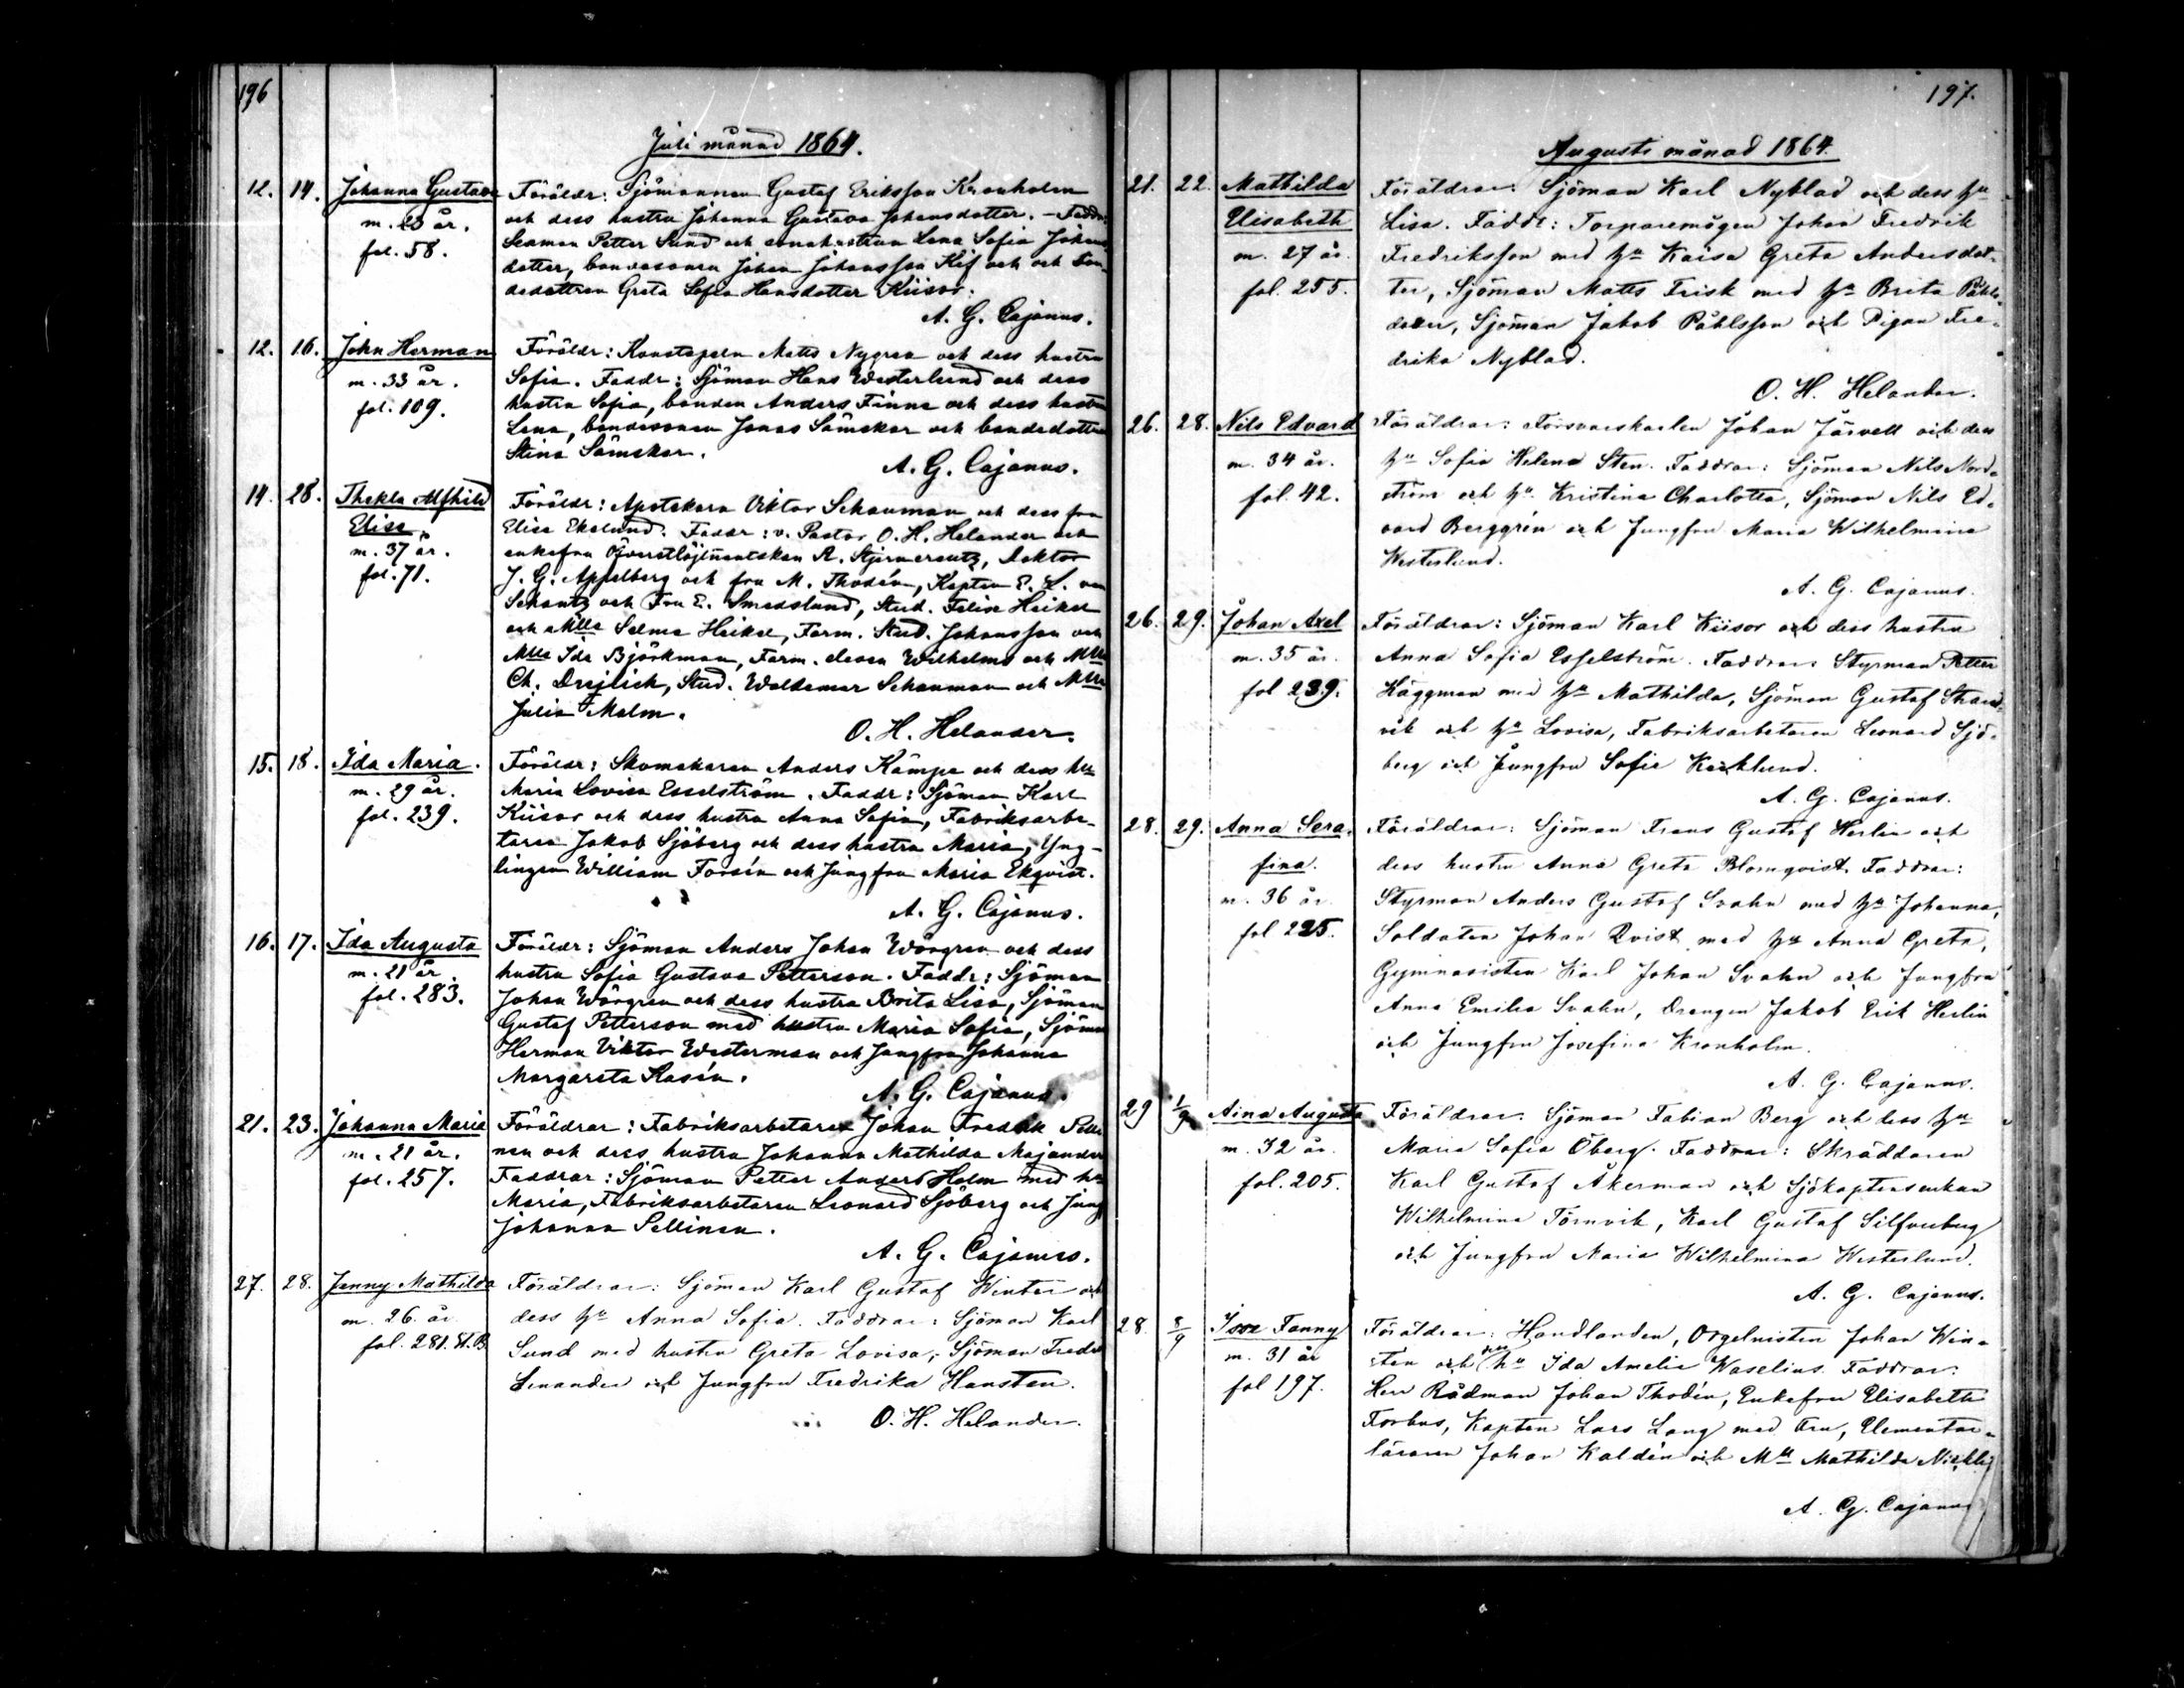 196
Juli månad 1864.
12. 14. Johanna Gustava Föräldr: Sjömannen Gustaf Eriksson Kronholm
m. 23 år. och dess hustru Johanna Gustava Johansdotter. – Faddr:
fol. 58. Seaman Petter Sund och enahustrun Lena Sofia Johans
dotter, bondesonen Johan Johansson Kif och och bon-
dedottren Greta Sofia Hansdotter Kiisor.
A. G. Cajanus.
12. 16. John Herman Föräldr: Konstapeln Matts Nygren och dess hustru
m. 33 år. Sofia. Faddr: Sjöman Hans Westerlund och dess
fol. 109. hustru Sofia, bonden Anders Finne och dess hustru
Lena, bondesonen Jonas Sämskar och bondedottren
Stina Sämskar.
A. G. Cajanus.
14. 28. Thekla Alfhild Föräldr: Apotekaren Viktor Schauman och dess fru
Elise Elise Ekelund. Faddr: v. Pastor O. H. Helander och
m. 37 år. enkefru Öfverstlöjtnantskan A. Stjernereutz, Doktor
fol. 71. J. G. Appelberg och fru M. Thodén, Kapten E. L. von
Schantz och Fru E. Smedslund, Stud. Felix Heikel
och Mlle Selma Heikel, Farm. Stud. Johansson och
Mlle Ida Björkman, Farm. eleven Wilhelms och Mlle
Ch. Drejlick, Stud. Woldemar Schauman och Mlle
Julia Malm.
O. H. Helander.
15. 18. Ida Maria. Föräldr: Skomakaren Anders Kämpe och dess hu
m. 29 år. Maria Lovisa Esselström. Faddr: Sjöman Karl
fol. 239. Kiisor och dess hustru Anna Sofia, Fabriksarbe-
taren Jakob Sjöberg och dess hustru Maria, Yng-
lingen William Forsén och Jungfru Maria Ekqvist.
A. G. Cajanus.
16. 17. Ida Augusta Föräldr: Sjöman Anders Johan Wörgren och dess
m. 21 år. hustru Sofia Gustava Petterson. Faddr: Sjöman
fol. 283. Johan Wörgren och dess hustru Brita Lisa, Sjöman
Gustaf Petterson med hustru Maria Sofia, Sjöman
Herman Viktor Westerman och Jungfru Johanna
Margareta Rasén.
A. G. Cajanus.
21. 23. Johanna Maria Föräldrar: Fabriksarbetaren Johan Fredrik Pelli
m. 21 år. nen och dess hustru Johanna Mathilda Majander
fol. 257. Faddrar: Sjöman Petter Anders Holm med hu
Maria, Fabriksarbetaren Leonard Sjöberg och Jungf
Johanna Sellinen.
A. G. Cajanus.
27. 28. Jenny Mathilda Föräldrar: Sjöman Karl Gustaf Winter och
m. 26. år dess hu Anna Sofia. Faddrar: Sjöman Karl
fol. 281. St. B. Sund med hustru Greta Lovisa, Sjöman Fredr
Lenander och Jungfru Fredrika Hansten.
O. H. Helander.
197.
Augusti månad 1864.
21. 22. Mathilda Föräldrar: Sjöman Karl Nyblad och dess hu
Elisabeth Lisa. Faddr: Torparemågen Johan Fredrik
m. 27 år. Fredriksson med hu Kaisa Greta Andersdot-
fol. 255. ter, Sjöman Matts Frisk med hu Brita Påhls-
dotter, Sjöman Jakob Påhlsson och Pigan Fre-
drika Nyblad.
O. H. Helander.
26. 28. Nils Edvard Föräldrar: Försvarskarlen Johan Järvell och dess
m. 34 år. hu Sofia Helena Sten. Faddrar: Sjöman Nils Nord-
fol. 42. ström och hu Kristina Charlotta, Sjöman Nils Ed-
vard Berggrén och Jungfru Maria Wilhelmina
Westerlund.
A. G. Cajanus.
26. 29. Johan Axel Föräldrar: Sjöman Karl Kiisor och dess hustru
m. 35 år. Anna Sofia Esselström. Faddrar: Styrman Petter
fol 239. Häggman med hu Mathilda, Sjöman Gustaf Strand-
vik och hu Lovisa, Fabriksarbetaren Leonard Sjö-
berg och Jungfru Sofia Kecklund.
A. G. Cajanus.
28. 29. Anna Sera- Föräldrar: Sjöman Frans Gustaf Herlin och
fina. dess hustru Anna Greta Blomqvist. Faddrar:
m. 36 år. Styrman Anders Gustaf Svahn med hu Johanna,
fol 225. Soldaten Johan Qvist med hu Anna Greta,
Gymnasisten Karl Johan Svahn och Jungfru
Anna Emilia Svahn, Drengen Jakob Erik Herlin
och Jungfru Josefina Kronholm.
A. G. Cajanus.
29 1/9 Aina Augusta Föräldrar: Sjöman Fabian Berg och dess hu
m. 32 år. Maria Sofia Öberg. Faddrar: Skräddaren
fol. 205. Karl Gustaf Åkerman och Sjökaptensenkan
Wilhelmina Törnvik, Karl Gustaf Silfverberg
och Jungfru Maria Wilhelmina Westerlund.
A. G. Cajanus.
28. 8/9 Fanny Föräldrar: Handlanden, Orgelnisten Johan Win-
m. 31 år sten och hu Ida Amelie Waselius. Faddrar:
fol 197. Herr Rådman Johan Thodén, Enkefru Elisabeth
Forbus, Kapten Lars Lang med Fru, Elementar-
läraren Johan Kaldén och Mll Mathilda
A. G. Cajanus